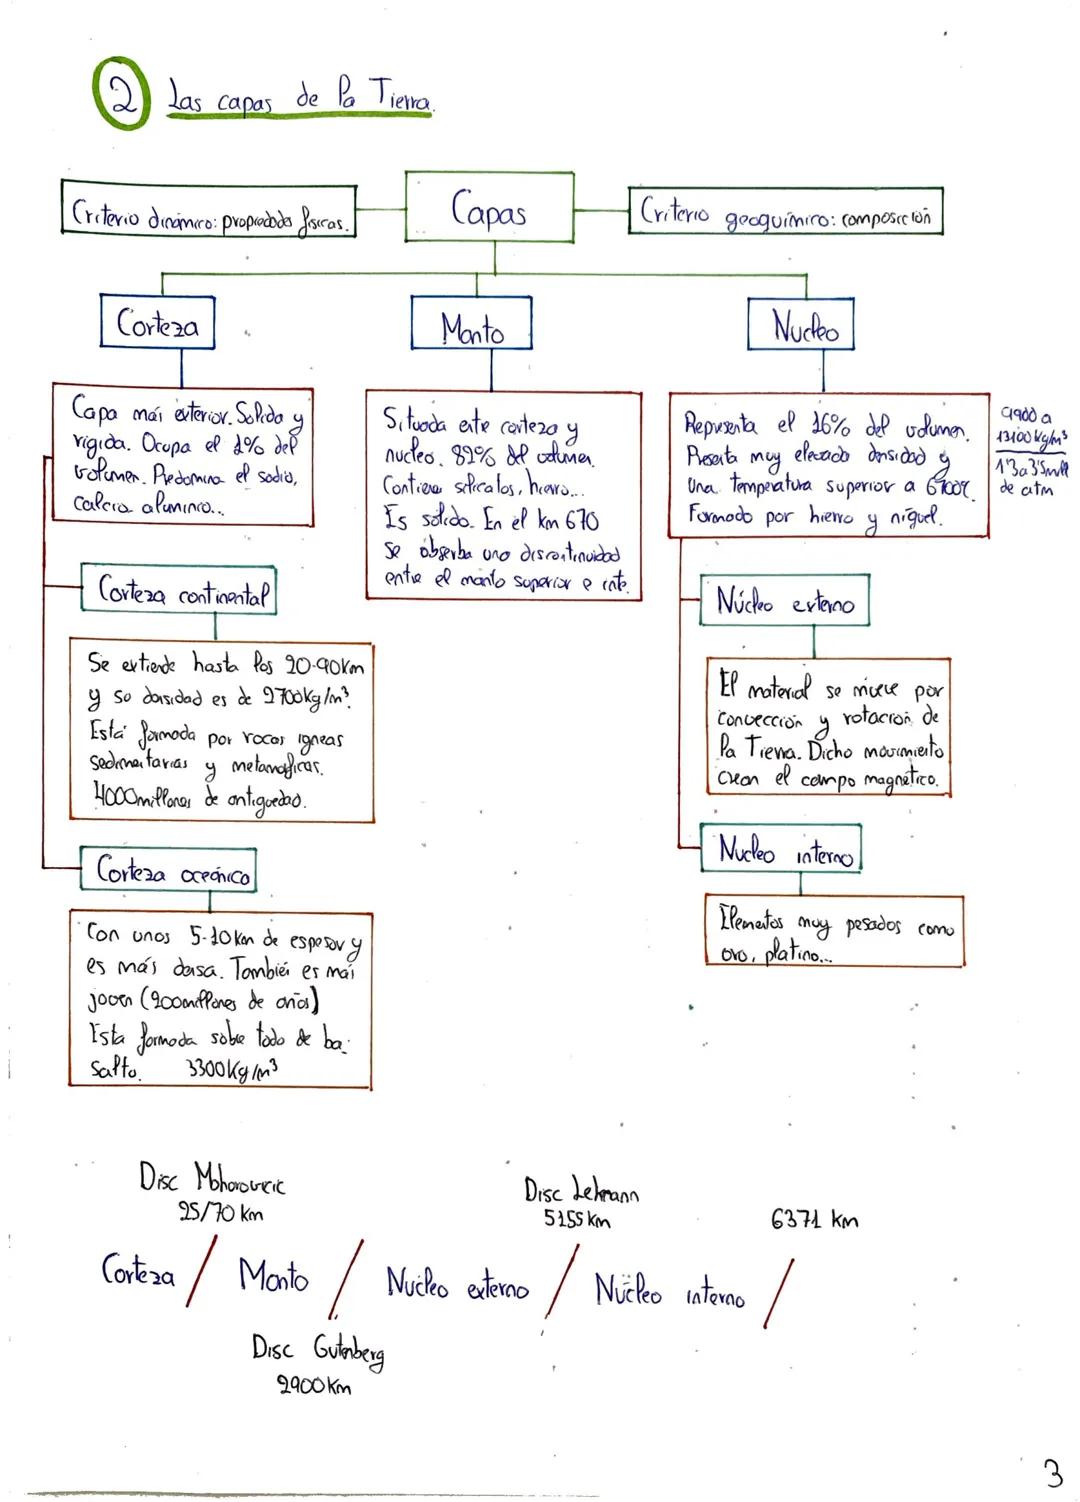 2 Las capas de la Tierra.
Criterio dinámico: propiedades físicas.
Capas
Criterio geoquímico: composición
Corteza
Manto
Nucleo
Capa más exterior. Solida y
rigida. Ocupa el 1% del
volumen. Predomina el sodio,
calcio aluminio...
Situada entre corteza y
nucleo. 82% del volumen.
Contiene silicatos, hierro...
Es solido. En el km 670
se observa una discontinuidad
entre el manto superior e inte.
Representa el 16% del volumen.
Presenta muy elevada densidad y
una temperatura superior a 6700ºC.
Formado por hierro y niquel.
9900 a
13100 kg/m³
1'3 a 3'5 mill
de atm
Corteza continental
Se extiende hasta los 20-90km
y su densidad es de 2700kg/m³.
Está formada por rocas igneas
sedimentarias y metamoficas.
4000 millones de antiguedad.
Corteza oceánica
Con unos 5-10 km de espesor y
es más densa. También es más
joven (200 millones de años)
Esta formada sobre todo de ba-
salto. 3300Kg/m³
Núcleo externo
El material se mueve por
convección y rotación de
la Tierra. Dicho movimiento
crean el campo magnético.
Nucleo interno
Elementos muy pesados como
oro, platino...
Disc Mohorovicic
25/70 km
Disc Lehmann
5155 km
6371 km
Corteza / Manto / Nucleo externo / Nucleo interno /
Disc Gutenberg
2900 Km
3